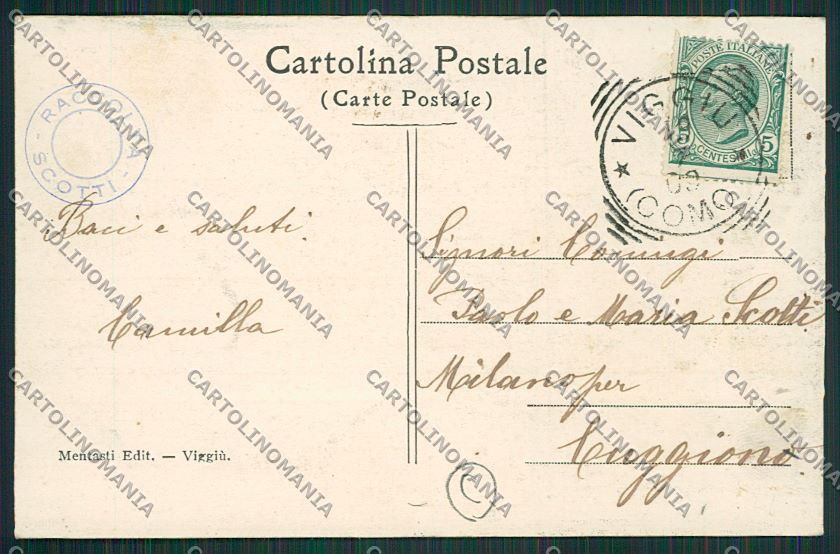 Cartolina Postale
(Carte Postale)
RACCOLTA
SCOTTI
POSTE ITALIANE
CENTESIMI 5
VIGGIÙ
09
(COMO)
Baci e saluti
Camilla
Signori Coniugi
Paolo e Maria Scotti
Milano per
Cuggiono
Mentasti Edit. — Viggiù.
C
CARTOLINOMANIA